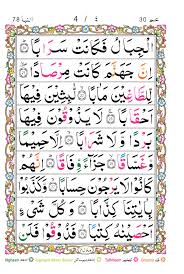 عم 30 4 / ٤ النبا 78
الْجِبَالُ فَكَانَتْ سَرَابًا ۝
اِنَّ جَهَنَّمَ كَانَتْ مِرْصَادًا ۝
لِّلطَّاغِيْنَ مَاٰبًا ۝ لّٰبِثِيْنَ فِيْهَا
اَحْقَابًا ۝ لَا يَذُوْقُوْنَ فِيْهَا
بَرْدًا وَّلَا شَرَابًا ۝ اِلَّا حَمِيْمًا
وَّغَسَّاقًا ۝ جَزَآءً وِّفَاقًا ۝ اِنَّهُمْ
كَانُوْا لَا يَرْجُوْنَ حِسَابًا ۝ وَّكَذَّبُوْا
بِاٰيٰتِنَا كِذَّابًا ۝ وَكُلَّ شَيْءٍ
اَحْصَيْنٰهُ كِتٰبًا ۝ فَذُوْقُوْا فَلَنْ